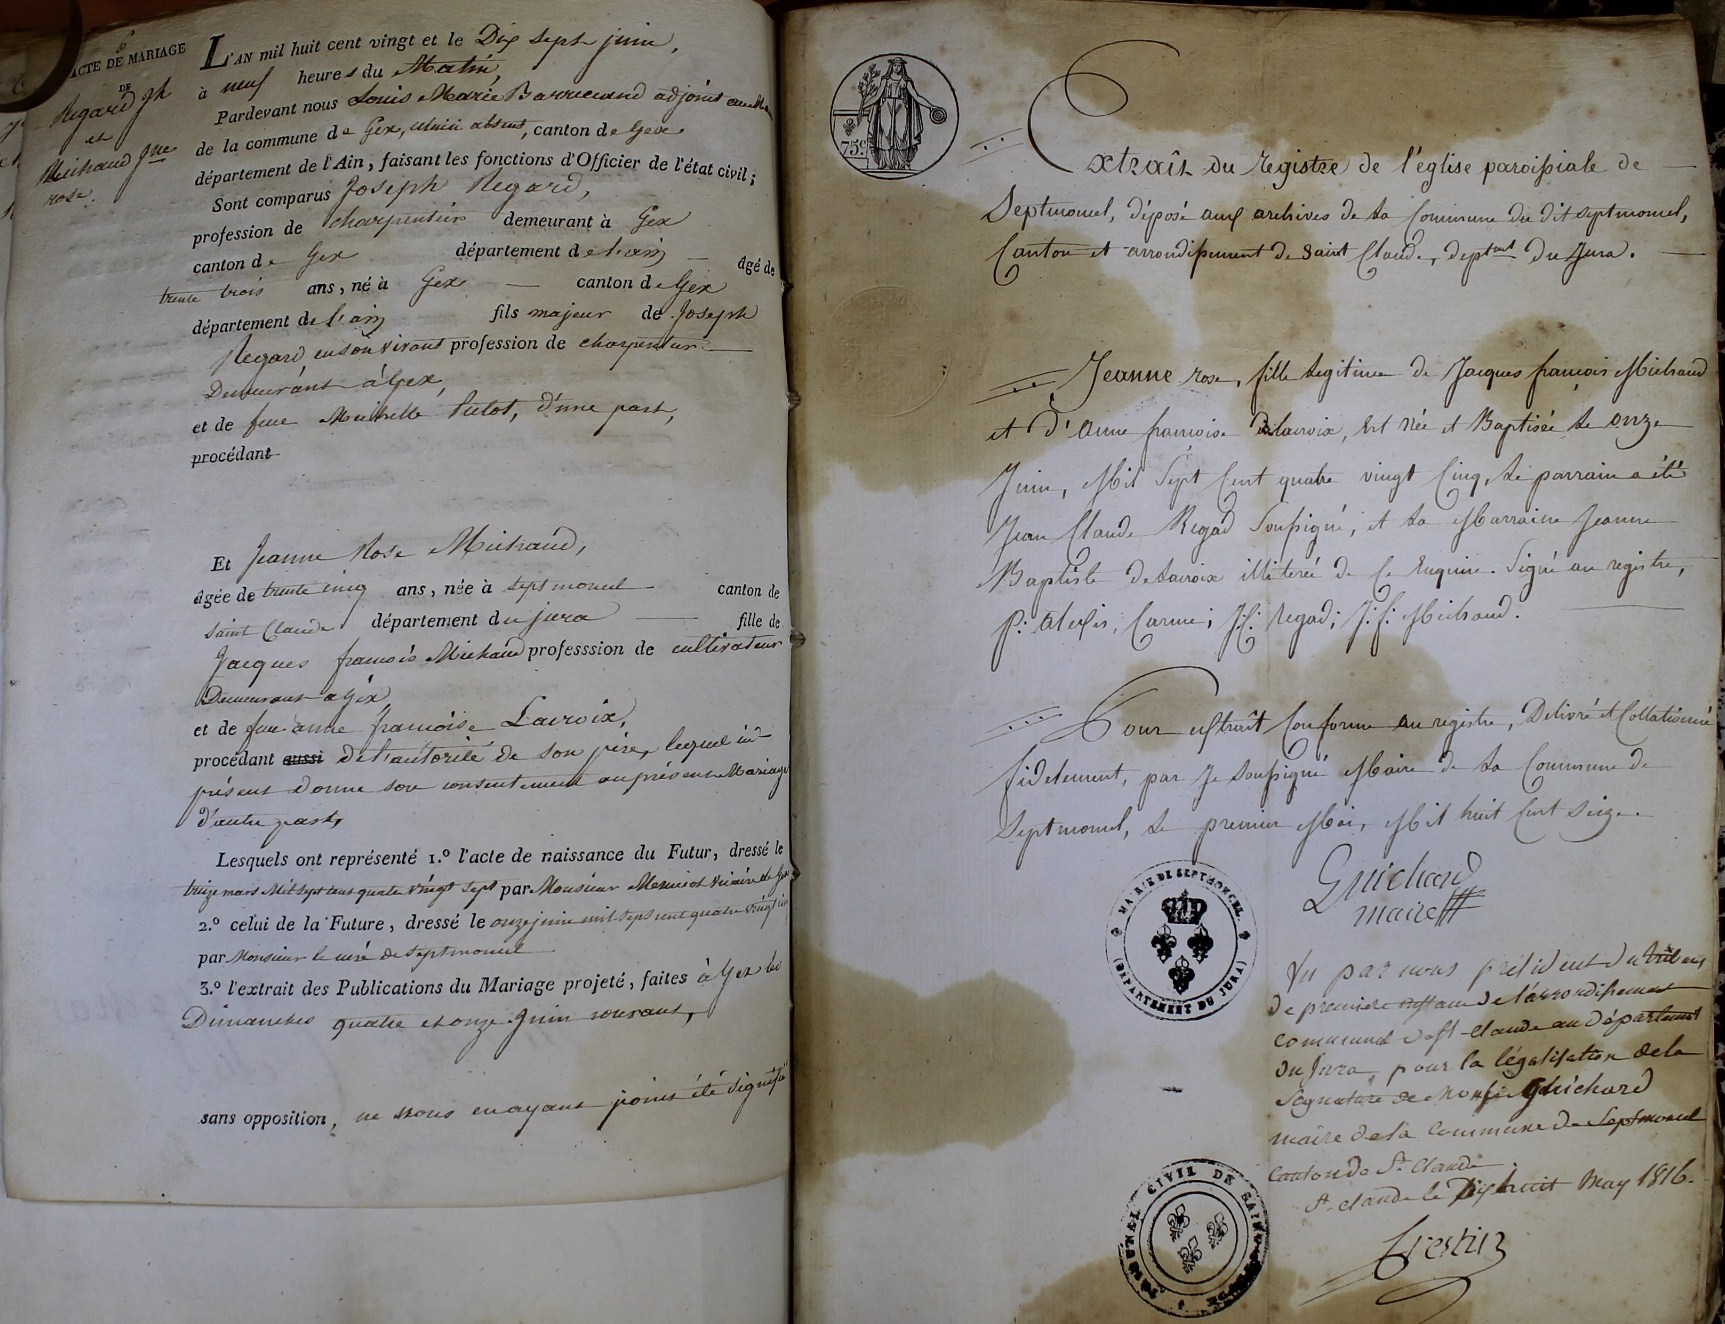 6
ACTE DE MARIAGE
DE
Regard Jh
et
Michaud Jne
rose.
L'AN mil huit cent vingt et le Dix sept juin,
à neuf heures du Matin,
Pardevant nous Louis Marie Barrucand adjoint au Maire
de la commune de Gex, absent, canton de Gex
département de l'Ain, faisant les fonctions d'Officier de l'état civil;
Sont comparus Joseph Regard,
profession de charpentier demeurant à Gex
canton de Gex département de l'ain âgé de
trente trois ans, né à Gex canton de Gex
département de l'ain fils majeur de Joseph
Regard en son vivant profession de charpentier
Demeurant à Gex,
et de feue Michelle d'une part,
procédant
Et Jeanne Rose Michaud,
âgée de trente cinq ans, née à Septmoncel canton de
Saint Claude département du jura fille de
Jacques françois Michaud professsion de cultivateur
Demeurant à Gex
et de feue anne françoise Lacroix,
procédant aussi de l'autorité de son père, lequel ici
présent donne son consentement au présent Mariage
d'autre part,
Lesquels ont représenté 1.º l'acte de naissance du Futur, dressé le
treize mars Mil sept cent quatre vingt sept par Monsieur vicaire de Gex
2.º celui de la Future, dressé le onze juin mil sept cent quatre vingt cinq
par Monsieur le curé de Septmoncel
3.º l'extrait des Publications du Mariage projeté, faites à Gex les
Dimanches quatre et onze Juin courant,
sans opposition, ne nous en ayant point été signifié
75c.
Extrait du registre de l'église paroissiale de
Septmoncel, déposé aux archives de la Commune du dit septmoncel,
Canton et arrondissement de Saint Claude, deptment du Jura.
Jeanne rose, fille legitime de Jacques françois Michaud
et d'anne françoise delacroix, est née et Baptisée le onze
Juin, Mil Sept Cent quatre vingt Cinq, le parrain a été
Jean Claude Regad Soussigné, et la Marraine Jeanne
Baptiste delacroix illiterée de Ce Enquise. Signé au registre,
p: alexis, Carme; J.C: regad; J: f: Michaud.
Pour extrait Conforme au registre, Delivré et Collationné
fidelement, par Je Soussigné Maire de la Commune de
Septmoncel, le premier Mai, Mil huit Cent Seize.
Guichard
maire
MAIRIE DE SEPTMONCEL
(DÉPARTEMENT DU JURA)
Vu par nous président du tribunal
de premiere instance de l'arrondissement
communal de St Claude au département
du Jura, pour la législation de la
Signature de Monsr. Guichard
maire de la commune de Septmoncel
Canton de St. Claude.
St. claude le Dix huit May 1816.
TRIBUNAL CIVIL DE SAINT CLAUDE